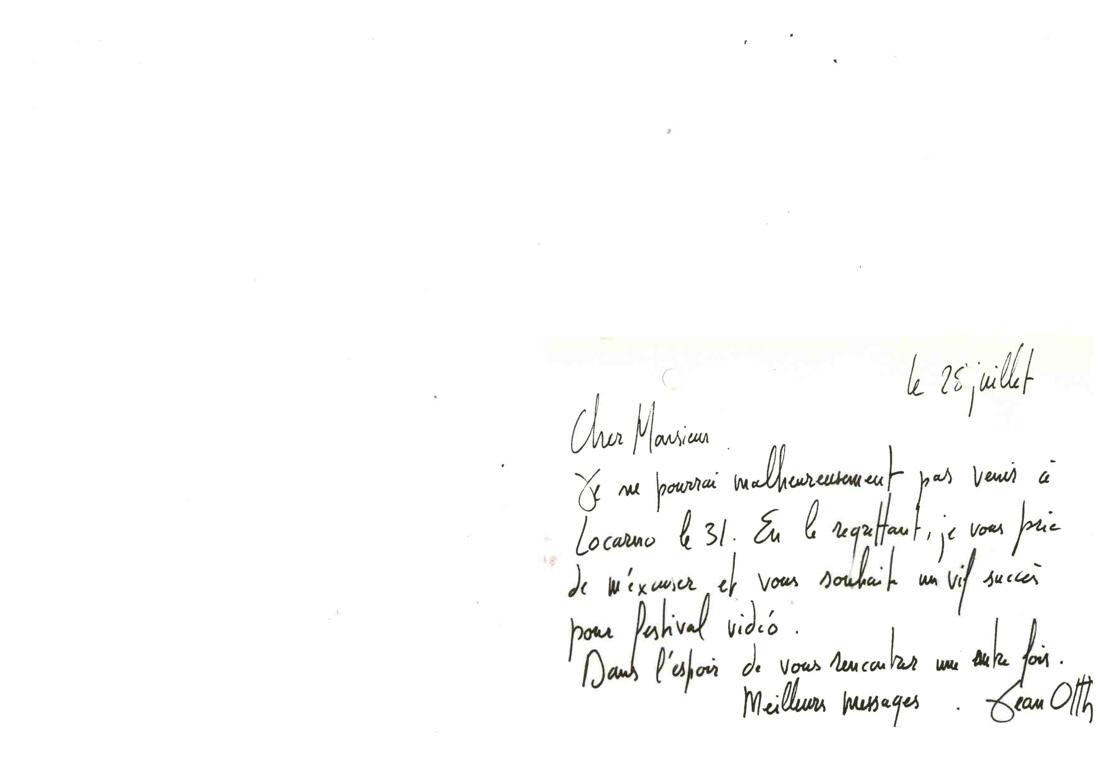 le 28 juillet
Cher Monsieur.
Je ne pourrai malheureusement pas venir à
Locarno le 31. En le regrettant, je vous prie
de m'éxcuser et vous souhaite un vif succès
pour festival vidéo.
Dans l'espoir de vous rencontrer une autre fois.
Meilleurs messages. Jean Otth